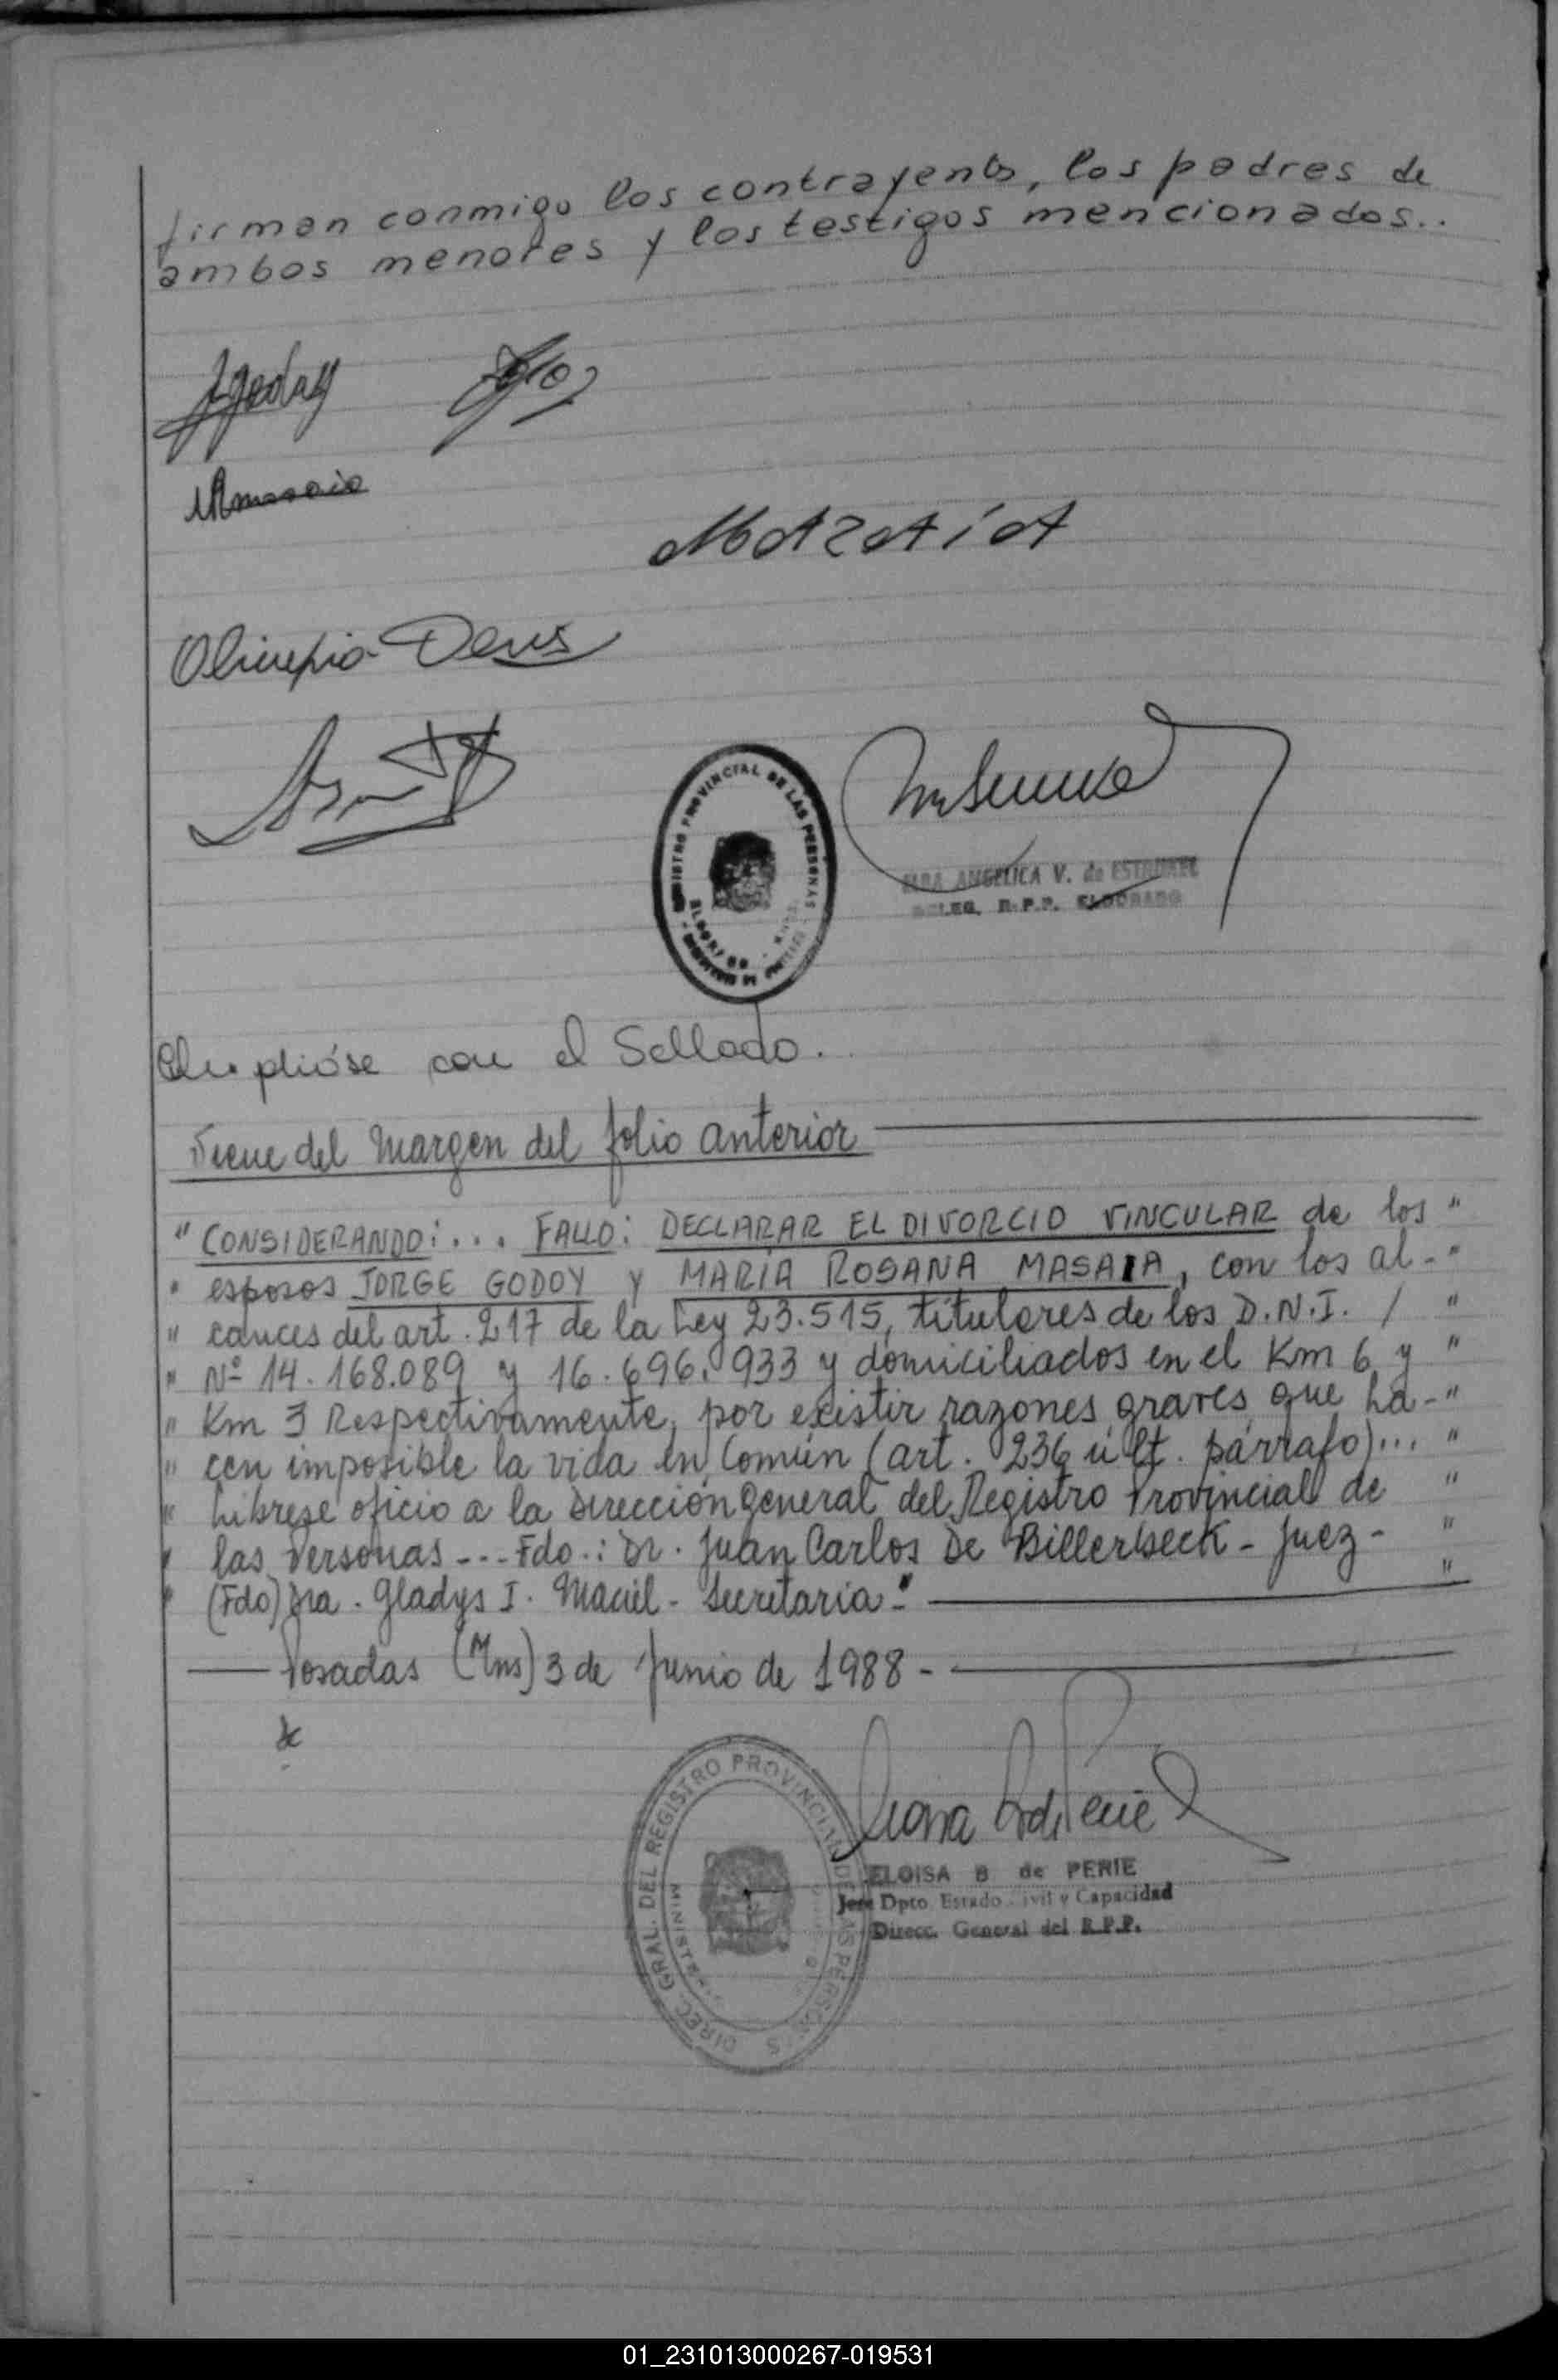 firman conmigo los contrayents, los padres de
ambos menores y los testigos mencionados..
JGodoy
MRmasaia
MAZAiA
Olimpio Deus
REGISTRO PROVINCIAL DE LAS PERSONAS
ELDORADO
ANGELICA V. de
DELEG. R.P.P. ELDORADO
Cumplióse con el Sellado.
Viene del Margen del folio anterior
" CONSIDERANDO: ... FALLO: DECLARAR EL DIVORCIO VINCULAR de los "
" esposos JORGE GODOY y MARÍA ROSANA MASAIA, con los al- "
" cances del art. 217 de la Ley 23.515, titulares de los D.N.I. / "
" Nº 14.168.089 y 16.696.933 y domiciliados en el Km 6 y "
" Km 3 Respectivamente, por existir razones graves que ha- "
" cen imposible la vida en Común (art. 236 últ. párrafo)... "
" Librese oficio a la Dirección general del Registro Provincial de "
" las Personas --- Fdo.: Dr. Juan Carlos De Billerbeck - Juez - "
" (Fdo) Dra. Gladys I. Maciel - Secretaria-" "
Posadas (Mns) 3 de Junio de 1988 -
DIREC. GRAL. DEL REGISTRO PROVINCIAL DE LAS PERSONAS
ELOISA B de PERIE
Jefe Dpto. Estado Civil y Capacidad
Direcc. General del R.P.P.
01_231013000267-019531